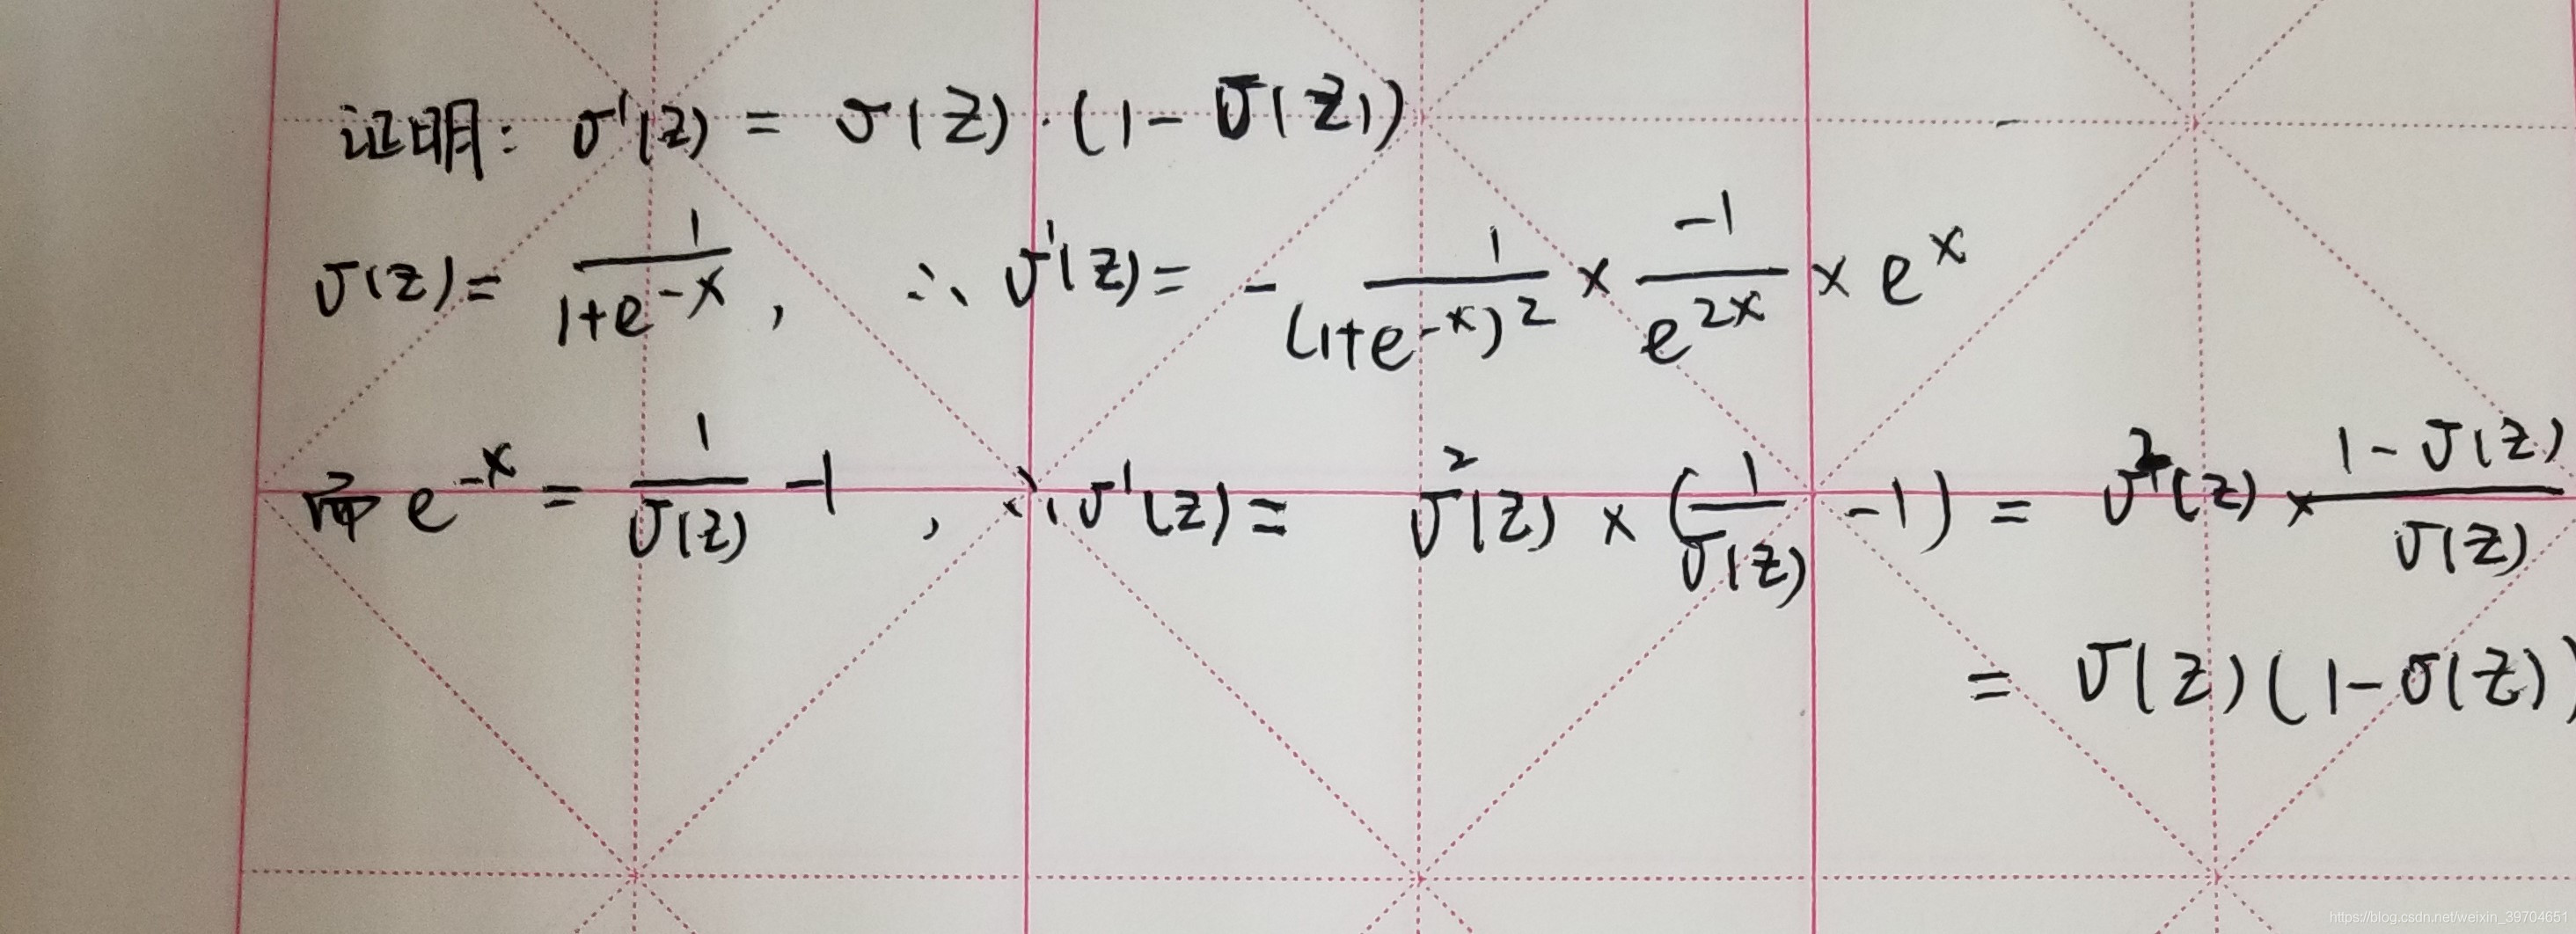 证明: σ'(z) = σ(z)·(1-σ(z))
σ(z) = 1/(1+e^{-x}), ∴ σ'(z) = - 1/(1+e^{-x})^2 × -1/e^{2x} × e^x
而 e^{-x} = 1/σ(z) -1, ∴ σ'(z) = σ^2(z) × (1/σ(z) -1) = σ^2(z) × (1-σ(z))/σ(z)
= σ(z)(1-σ(z))
https://blog.csdn.net/weixin_39704651